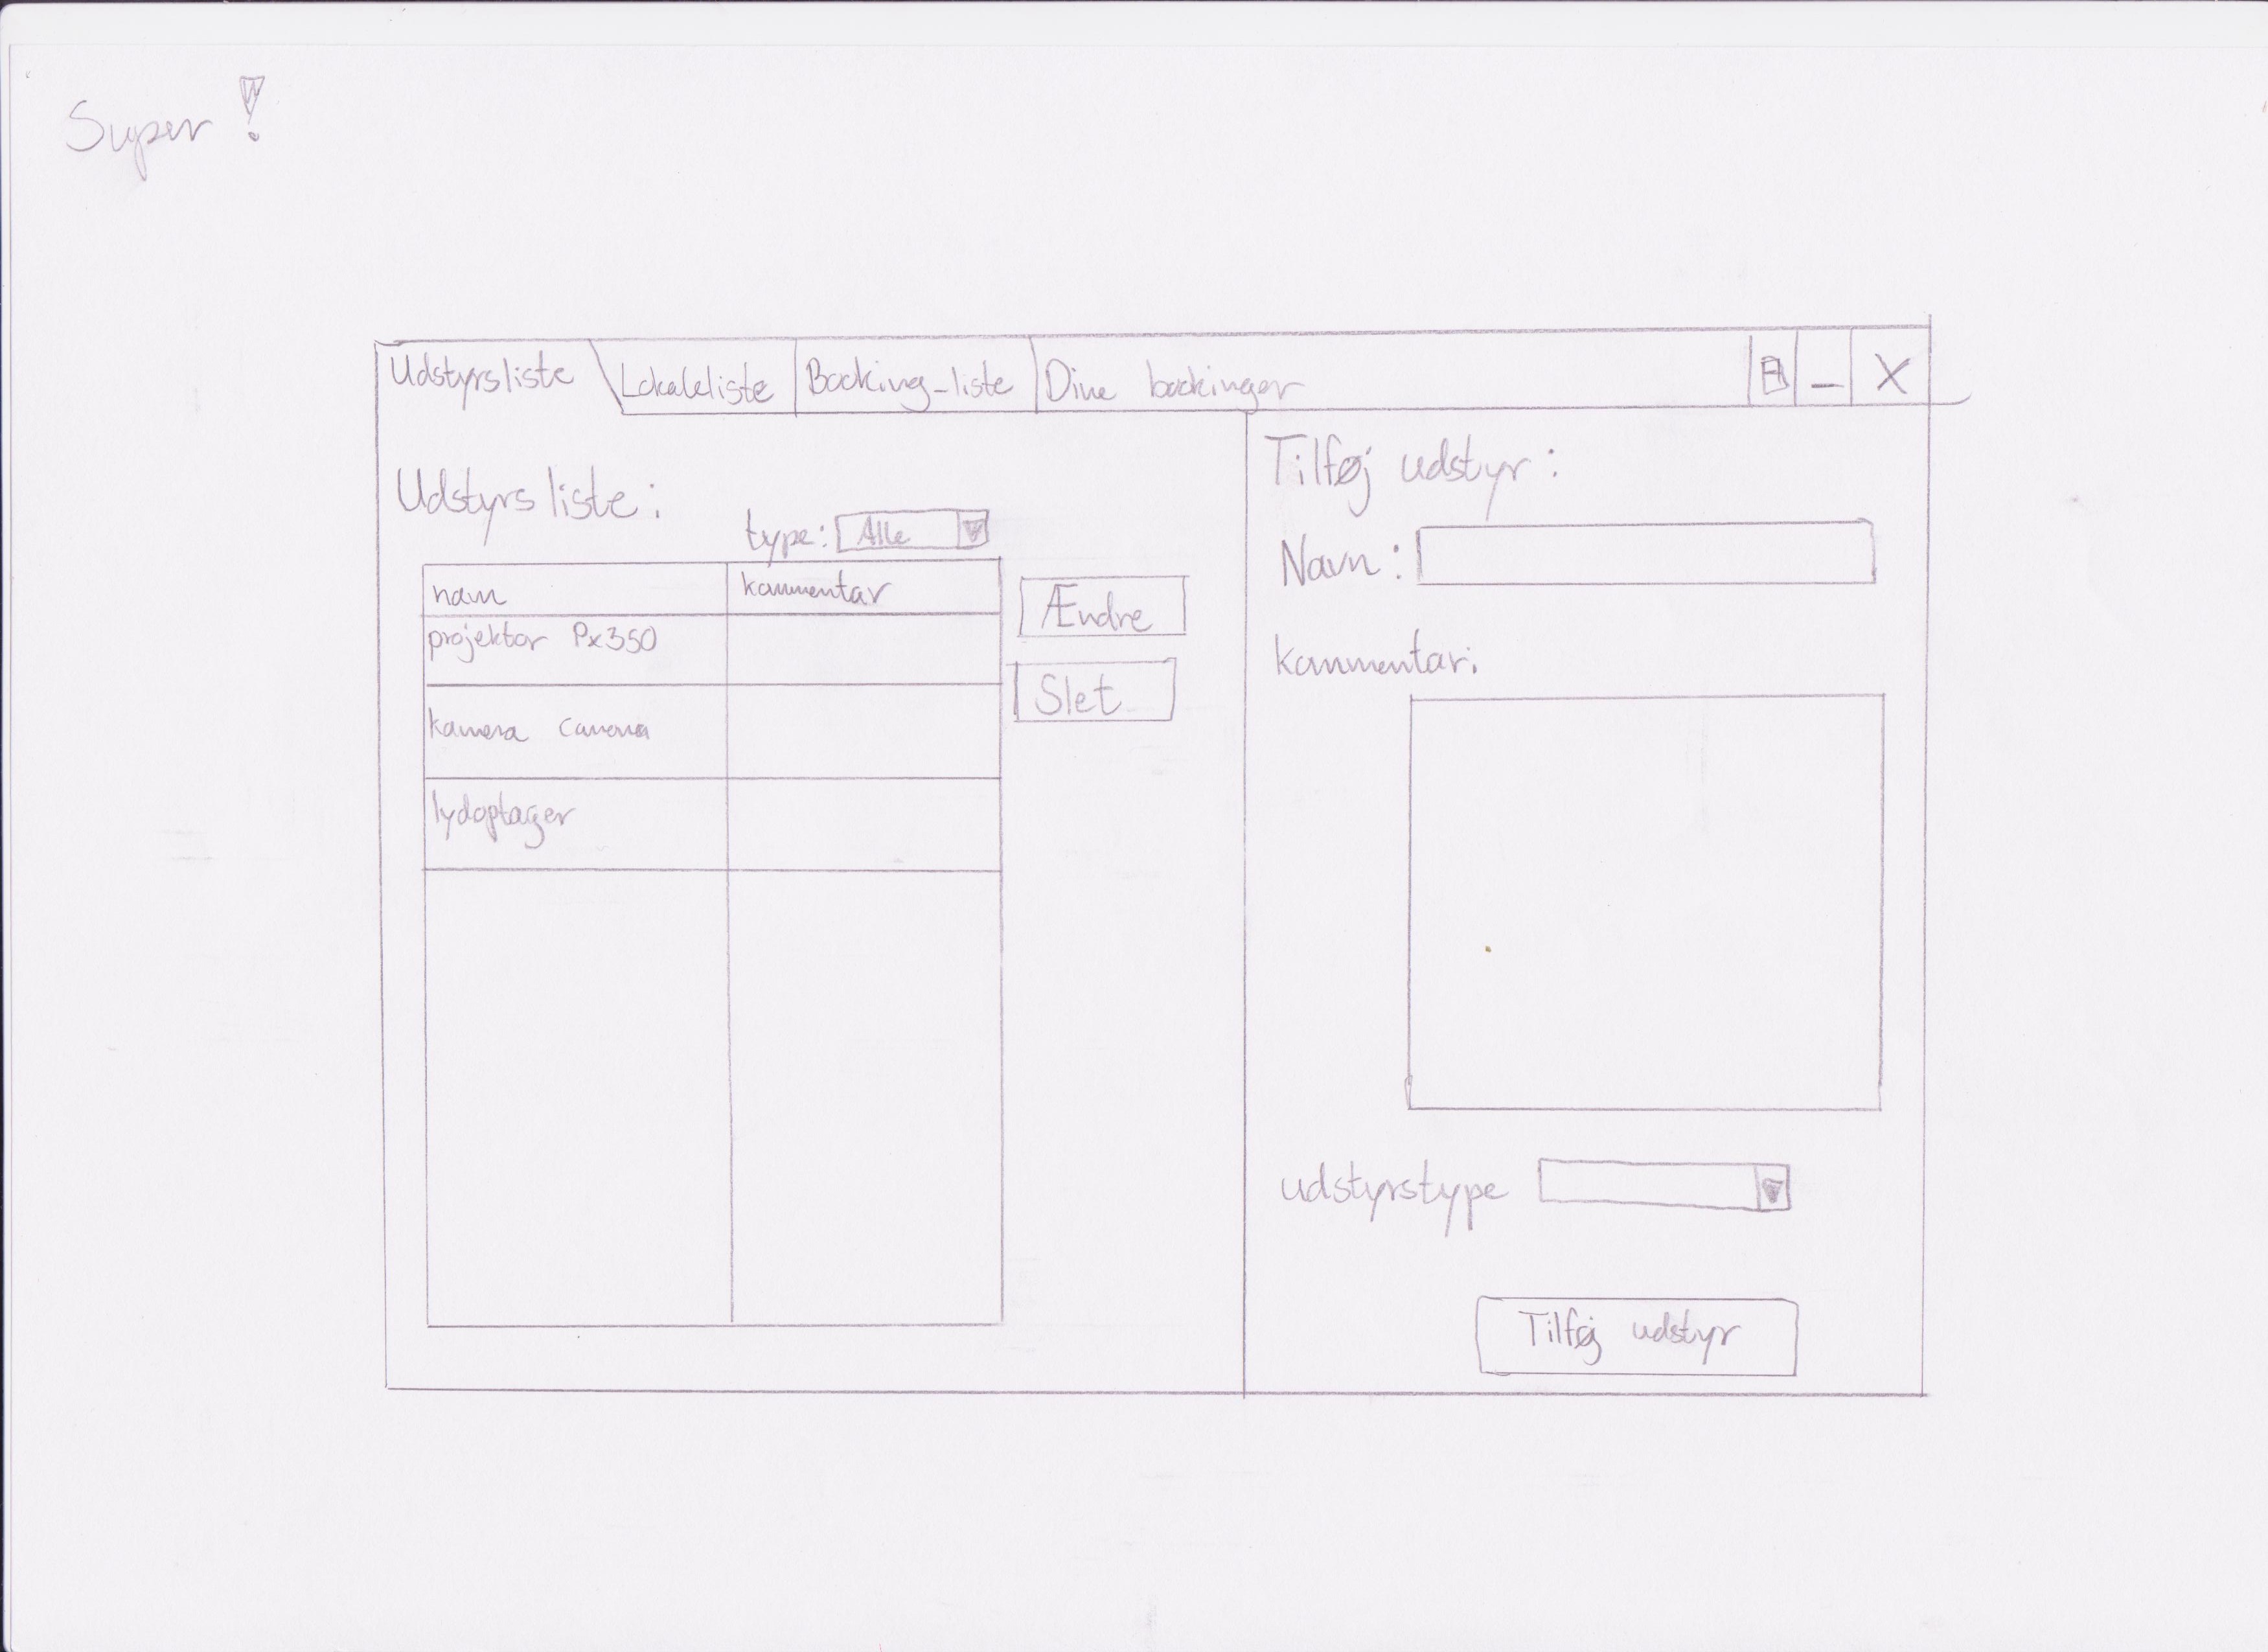 Super!
Udstyrsliste Lokaleliste Booking-liste Dine bookinger
Udstyrsliste:
type: Alle
navn kommentar
projektor Px350
kamera
lydoptager
Ændre
Slet
Tilføj udstyr:
Navn:
kommentar:
udstyrstype
Tilføj udstyr